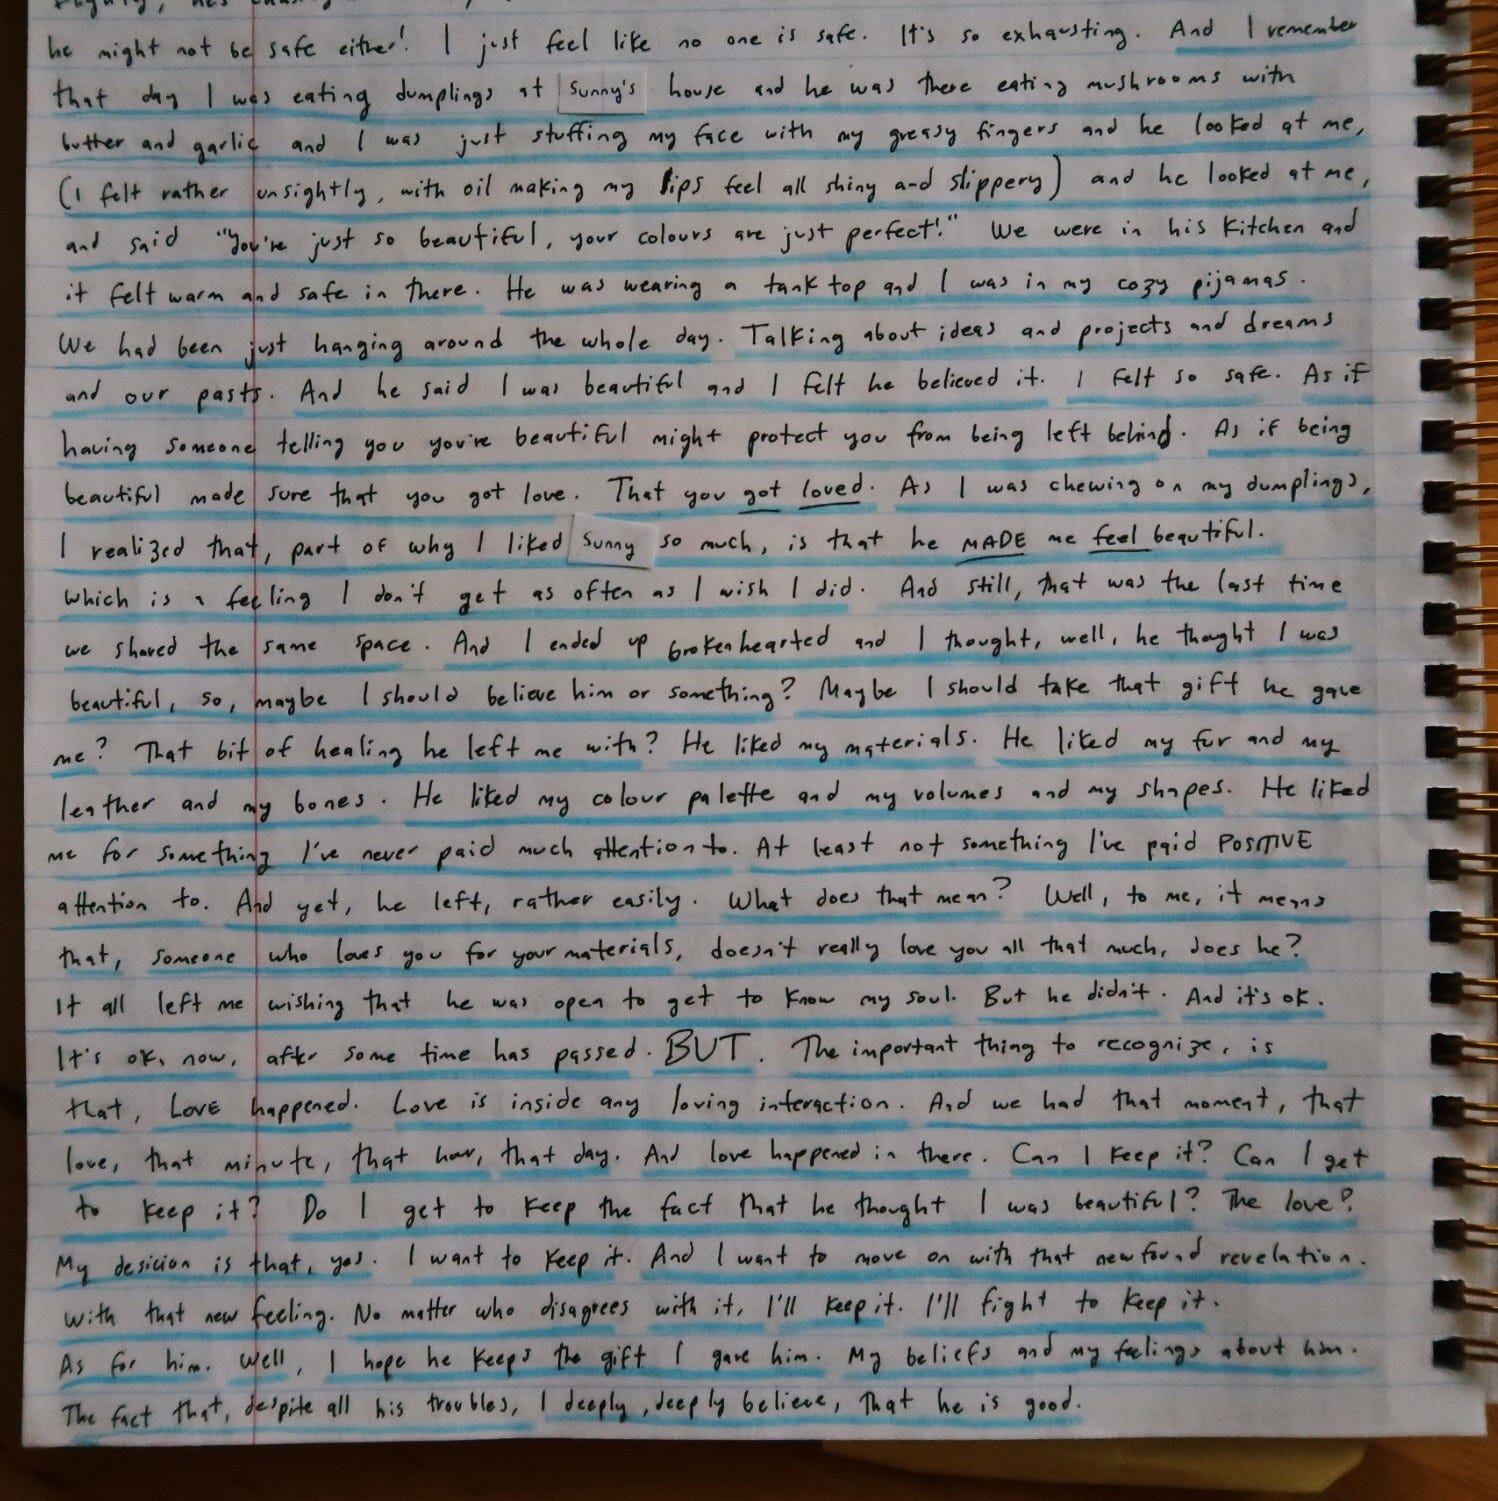 he might not be safe either! I just feel like no one is safe. It's so exhausting. And I remember
that day I was eating dumplings at Sunny's house and he was there eating mushrooms with
butter and garlic and I was just stuffing my face with my greasy fingers and he looked at me,
(I felt rather unsightly, with oil making my lips feel all shiny and slippery) and he looked at me,
and said "You're just so beautiful, your colours are just perfect!" We were in his kitchen and
it felt warm and safe in there. He was wearing a tank top and I was in my cozy pijamas.
We had been just hanging around the whole day. Talking about ideas and projects and dreams
and our pasts. And he said I was beautiful and I felt he believed it. I felt so safe. As if
having someone telling you you're beautiful might protect you from being left behind. As if being
beautiful made sure that you got love. That you got loved. As I was chewing on my dumplings,
I realized that, part of why I liked Sunny so much, is that he MADE me feel beautiful.
which is a feeling I don't get as often as I wish I did. And still, that was the last time
we shared the same space. And I ended up brokenhearted and I thought, well, he thought I was
beautiful, so, maybe I should believe him or something? Maybe I should take that gift he gave
me? That bit of healing he left me with? He liked my materials. He liked my fur and my
leather and my bones. He liked my colour palette and my volumes and my shapes. He liked
me for something I've never paid much attention to. At least not something I've paid POSITIVE
attention to. And yet, he left, rather easily. What does that mean? Well, to me, it means
that, someone who loves you for your materials, doesn't really love you all that much, does he?
It all left me wishing that he was open to get to know my soul. But he didn't. And it's ok.
It's ok, now, after some time has passed. BUT. The important thing to recognize, is
that, LOVE happened. Love is inside any loving interaction. And we had that moment, that
love, that minute, that hour, that day. And love happened in there. Can I keep it? Can I get
to keep it? Do I get to keep the fact that he thought I was beautiful? The love?
My desicion is that, yes. I want to keep it. And I want to move on with that newfound revelation.
with that new feeling. No matter who disagrees with it, I'll keep it. I'll fight to keep it.
As for him. Well, I hope he keeps the gift I gave him. My beliefs and my feelings about him.
The fact that, despite all his troubles, I deeply, deeply believe, that he is good.